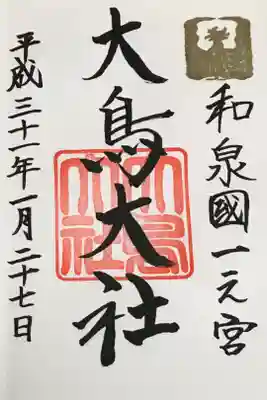 和泉國一之宮
大鳥大社
平成三十一年一月二十七日
大鳥
大社